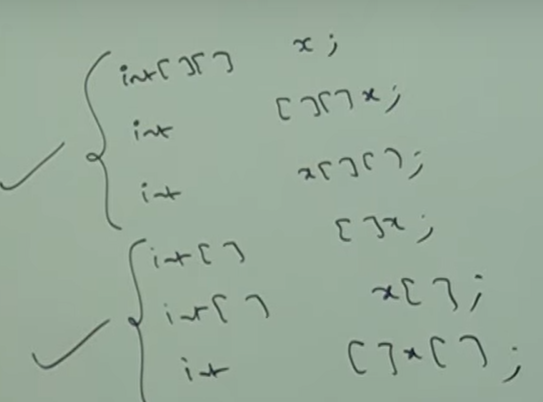 int[][] x;
int [][]x;
int x[][];
int[] []x;
int[] x[];
int []x[];